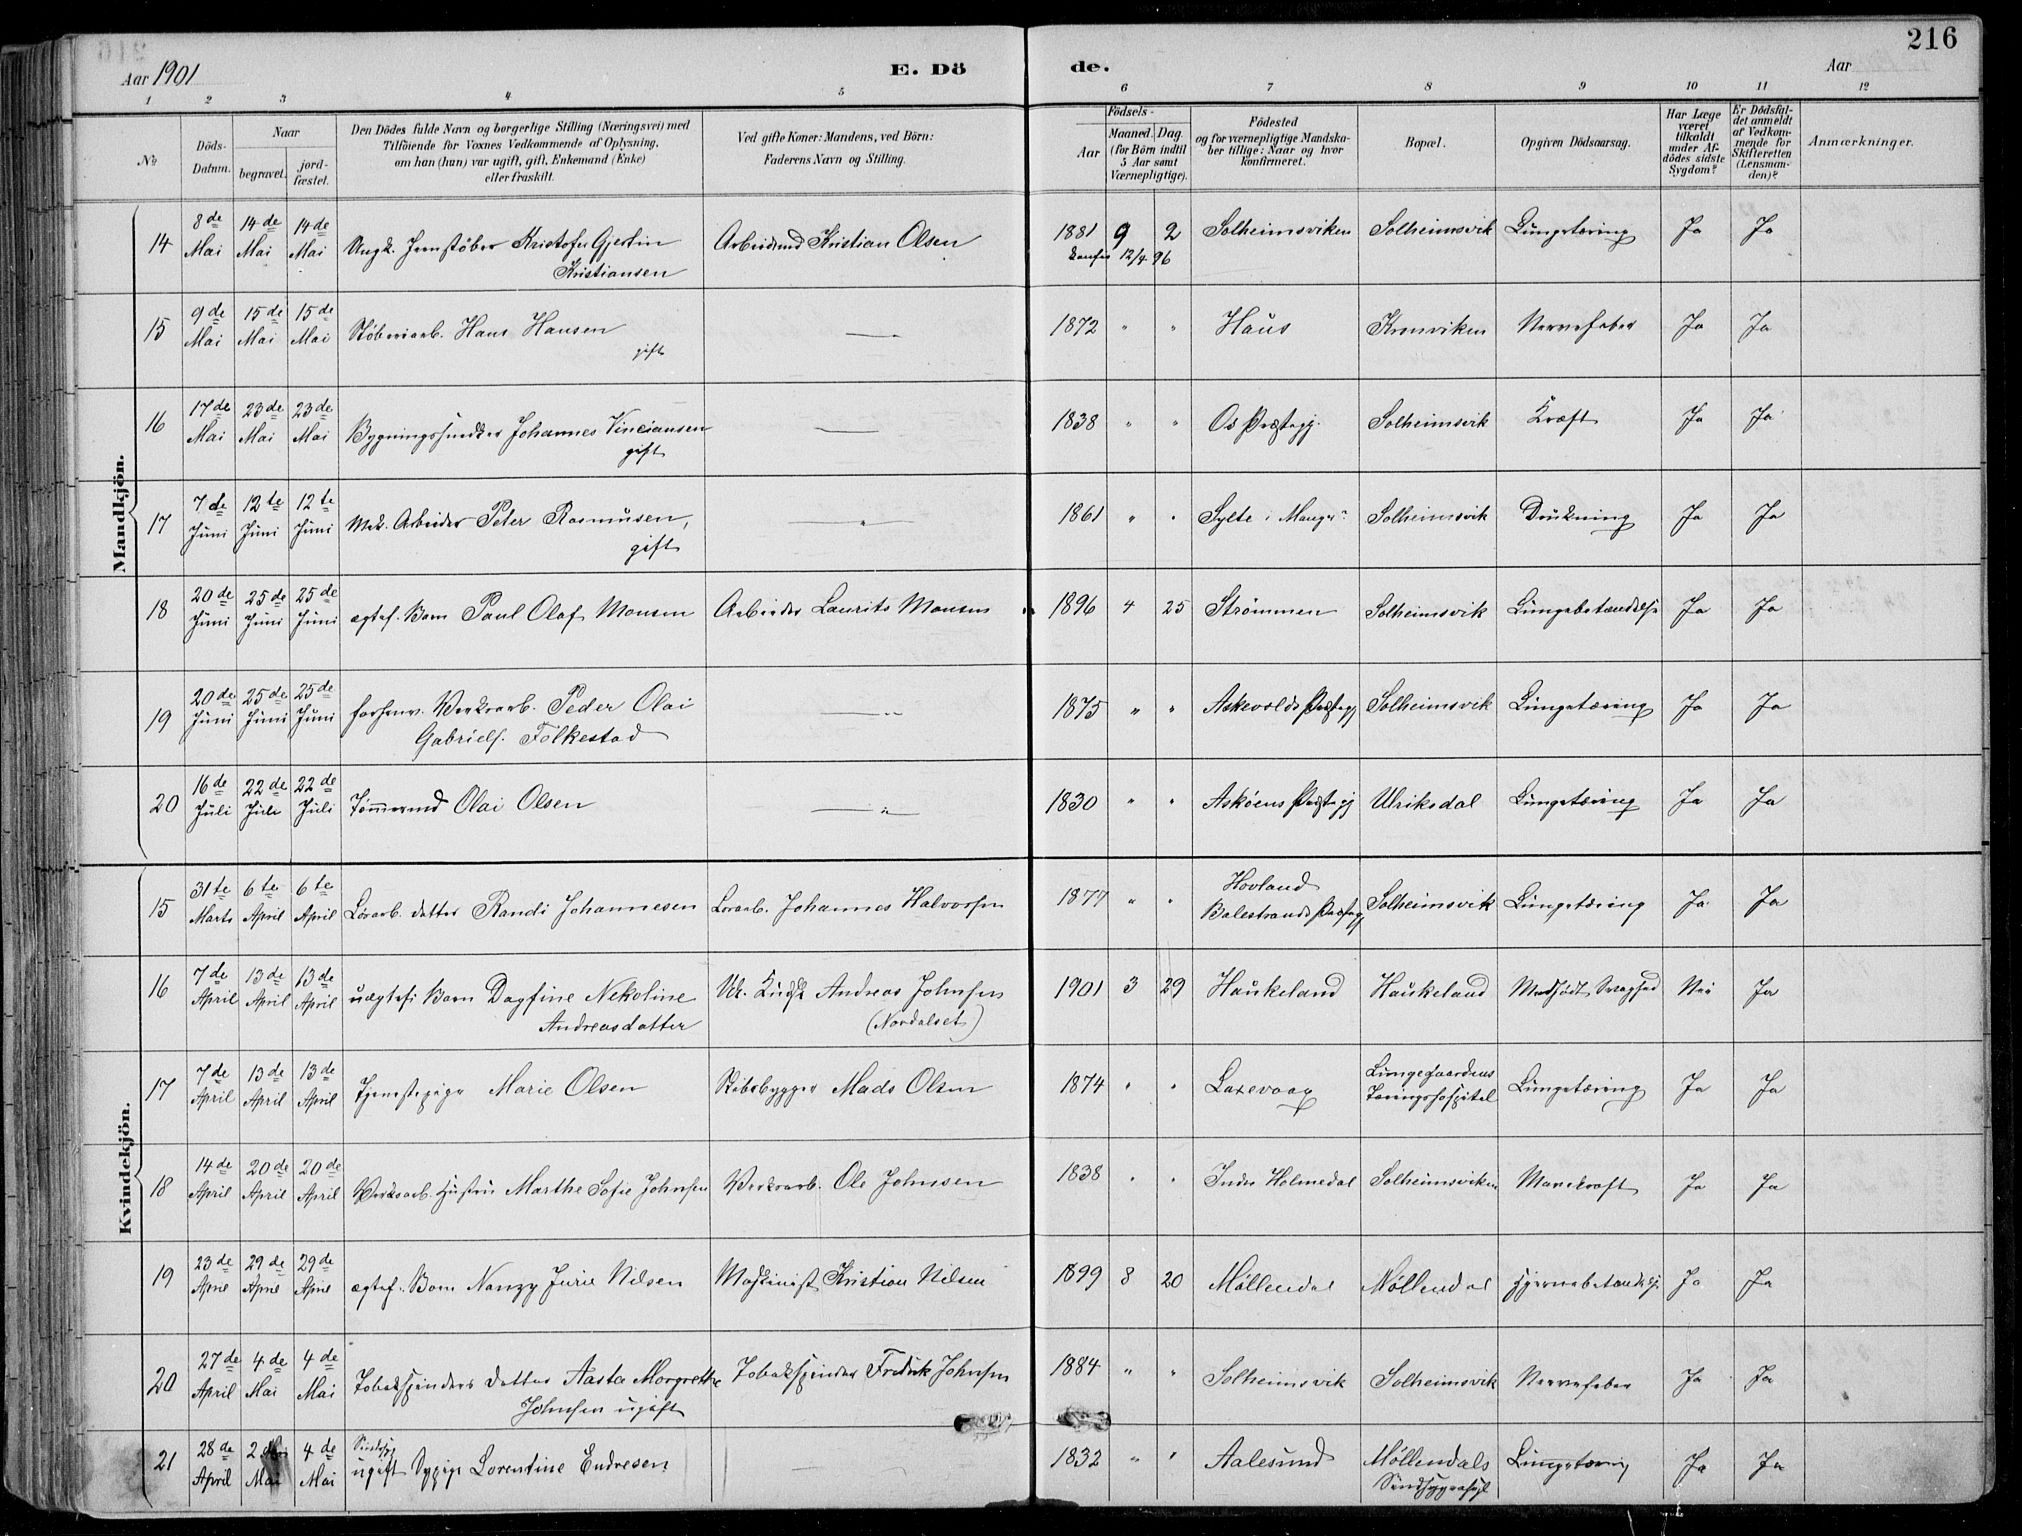 216
Aar 1901
E. Dö de.
Aar
1 2 3 4 5 6 7 8 9 10 11 12
№
Döds-Datum.
Naar
begravet.
jord-fæstet.
Den Dödes fulde Navn og borgerlige Stilling (Næringsvei) med
Tilföiende for Voxnes Vedkommende af Oplysning,
om han (hun) var ugift, gift, Enkemand (Enke)
eller fraskilt.
Ved gifte Koner: Mandens, ved Börn:
Faderens Navn og Stilling.
Födsels-
Aar
Maaned. Dag.
(for Börn indtil
5 Aar samt
Værnepligtige).
Födested
og for værnepligtige Mandska-
ber tillige: Naar og hvor
konfirmeret.
Bopæl.
Opgiven Dödsaarsag.
Har Læge
været
tilkaldt
under Af-
dödes sidste
Sygdom?
Er Dödsfal-
det anmeldt
af Vedkom-
mende for
Skifteretten
(Lensman-
den)?
Anmærkninger.
Mandkjön.
14 8de Mai 14de Mai 14de Mai Ungk. Jernstöber Kristofer Gjertin Arbeidsmd Kristian Olsen 1881 9 2 Solheimsviken Solheimsvik Lungetæring Ja Ja
Kristiansen konfir 12/4 96
15 9de Mai 15de Mai 15de Mai Støberiarb. Hans Hansen — 1872 " " Haus Kronviken Nervefeber Ja Ja
gift
16 17de Mai 23de Mai 23de Mai Bygningssnedker Johannes Vinciansen — 1838 " " Os Præstegj. Solheimsvik Kræft Ja Ja
gift
17 7de Juni 12te Juni 12te Juni Mek. Arbeider Peter Rasmusen, " 1861 " " Sylte i Manger Solheimsvik Drukning Ja Ja
gift
18 20de Juni 25de Juni 25de Juni ægtef. Barn Paul Olaf Monsen Arbeider Laurits Monsen 1896 4 25 Strömmen Solheimsvik Lungebetændelse Ja Ja
19 20de Juni 25de Juni 25de Juni forhenv. Verksarb. Peder Olai — " — 1875 " " Askevolds Præstegj Solheimsvik Lungetæring Ja Ja
Gabriels. Folkestad
20 16de Juli 22de Juli 22de Juli Tømmermd Olai Olsen — " — 1830 " " Askøens Præstegj Ulriksdal Lungetæring Ja Ja
Kvindekjön.
15 31te Marts 6te April 6te April Lösarb. datter Randi Johannesen Lösarb. Johannes Halvorsen 1877 " " Hovland Balestrands Præstegj Solheimsvik Lungetæring Ja Ja
16 7de April 13de April 13de April uægtef. Barn Dagfine Nekoline Andreas Johnsen 1901 3 29 Haukeland Haukeland Medfödt Svaghed Nei Ja
Andreasdatter (Nordalset)
17 7de April 13de April 13de April Tjenestepige Marie Olsen Skibsbygger Mads Olsen 1874 " " Laxevaag Lungegaardens Tæringshospital Lungetæring Ja Ja
18 14de April 20de April 20de April Verksarb. Hustru Marthe Sofie Johnsen Verksarb. Ole Johnsen 1838 " " Indre Holmedal Solheimsviken Mavekræft Ja Ja
19 23de April 29de April 29de April ægtef. Barn Nanzy Jurie Nilsen Maskinist Kristian Nilsen 1899 8 20 Møllendal Møllendal Hjernebetændelse Ja Ja
20 27de April 4de Mai 4de Mai Tobakspinders datter Aasta Margrethe Tobakspinder Fredrik Johnsen 1884 " " Solheimsvik Solheimsvik Nervefeber Ja Ja
Johnsen ugift
21 28de April 2 Mai 4de Mai Sindssyg ugift Sypige Lorentine Endresen — 1832 " " Aalesund Møllendals Sindssygeasyl Lungetæring Ja Ja